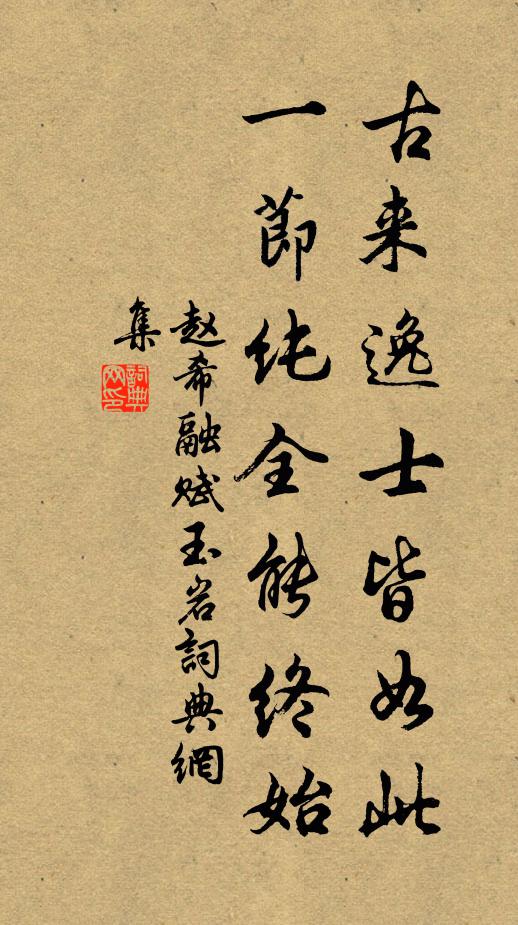 古来逸士皆如此
一節纯全能终始
赵希融赋玉岩詞典網
集
詞典網印